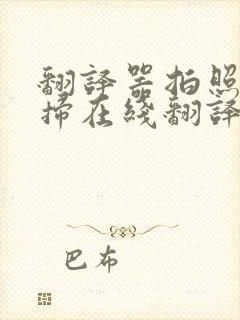 翻譯器拍照
掃在綫翻譯
巴布